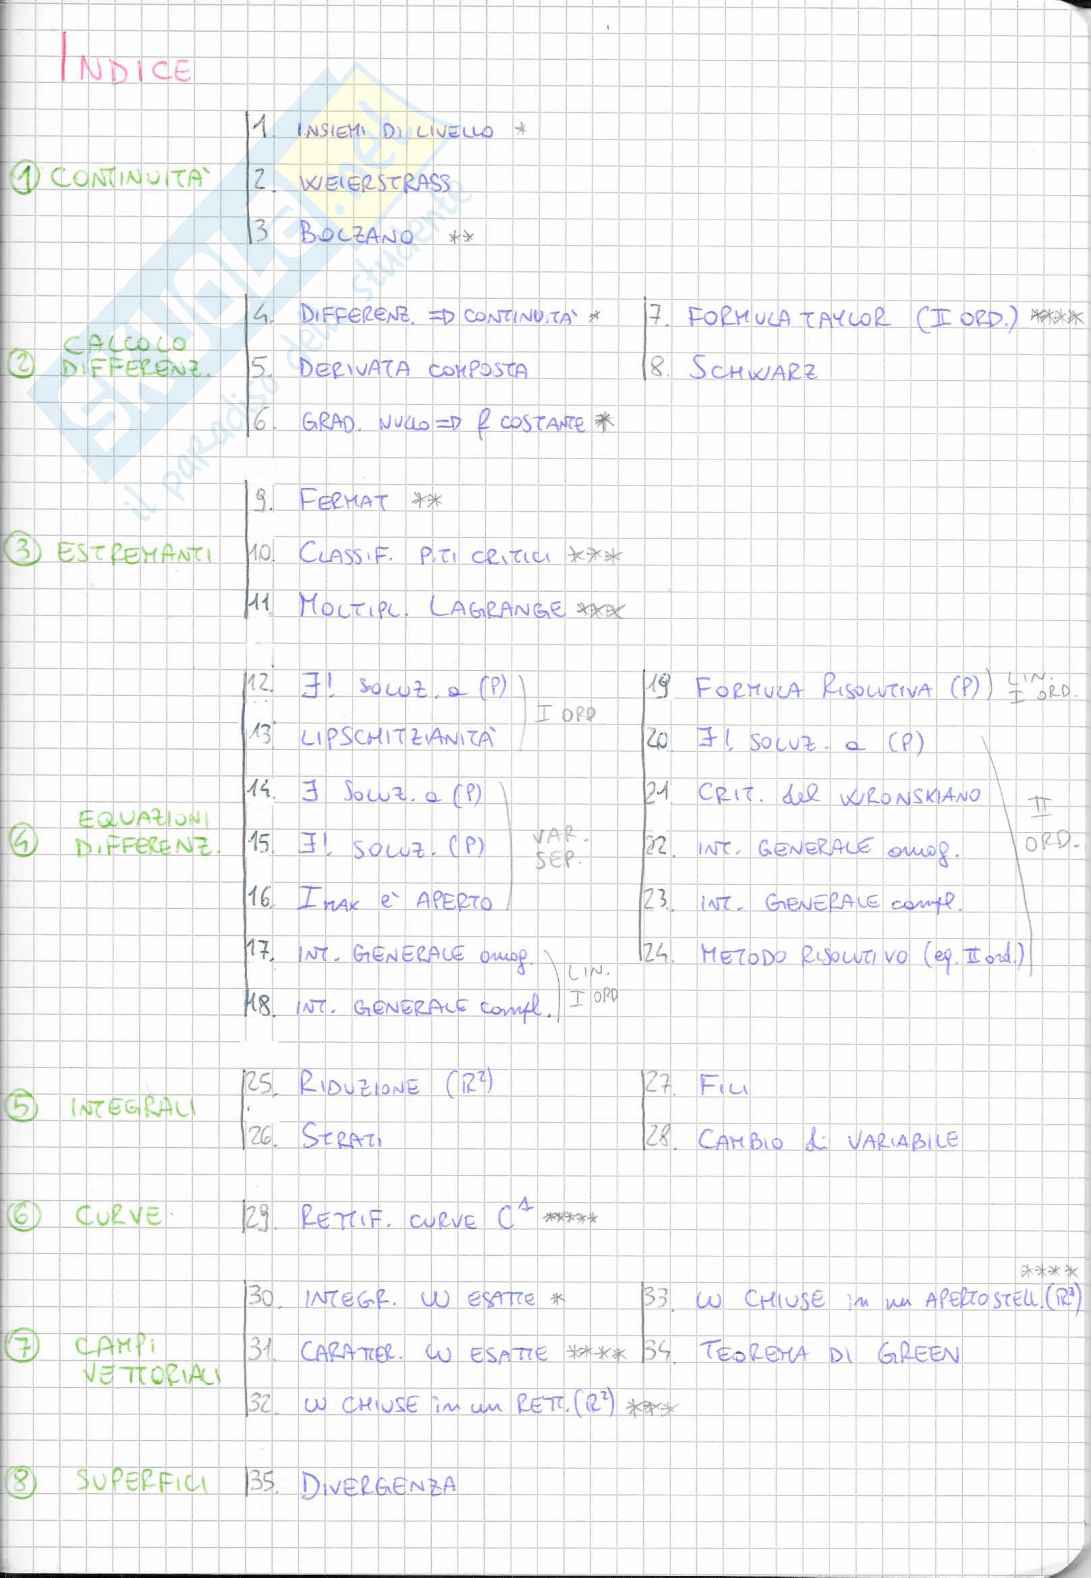 INDICE
1. INSIEMI DI LIVELLO *
① CONTINUITA'
2. WEIERSTRASS
3 BOLZANO **
② CALCOLO
DIFFERENZ.
4. DIFFERENZ. => CONTINUITA' *
5. DERIVATA COMPOSTA
6. GRAD. NULLO => f COSTANTE *
7. FORMULA TAYLOR (II ORD.) ****
8. SCHWARZ
③ ESTREMANTI
9. FERMAT **
10. CLASSIF. P.TI CRITICI ***
11 MOLTIPL. LAGRANGE ***
④ EQUAZIONI
DIFFERENZ.
12. ∃! SOLUZ. a (P)
13 LIPSCHITZIANITA'
I ORD
14. ∃ SOLUZ. a (P)
15. ∃! SOLUZ. (P)
16. Imax e' APERTO
VAR.
SEP.
17. INT. GENERALE omog.
18. INT. GENERALE compl.
LIN.
I ORD
19 FORMULA RISOLUTIVA (P)
LIN.
I ORD.
20. ∃! SOLUZ. a (P)
21 CRIT. del WRONSKIANO
22. INT. GENERALE omog.
23. INT. GENERALE compl.
24. METODO RISOLUTIVO (eq. II ord.)
II
ORD.
⑤ INTEGRALI
25. RIDUZIONE (R²)
26. STRATI
27. FILI
28. CAMBIO di VARIABILE
⑥ CURVE
29. RETTIF. CURVE C¹ *****
⑦ CAMPI
VETTORIALI
30. INTEGR. ω ESATTE *
31. CARATTER. ω ESATTE ****
32. ω CHIUSE in un RETT. (R²) ***
33. ω CHIUSE in un APERTO STELL. (R³) ****
34. TEOREMA DI GREEN
⑧ SUPERFICI
35. DIVERGENZA
SKUOLA.net
il paradiso dello studente